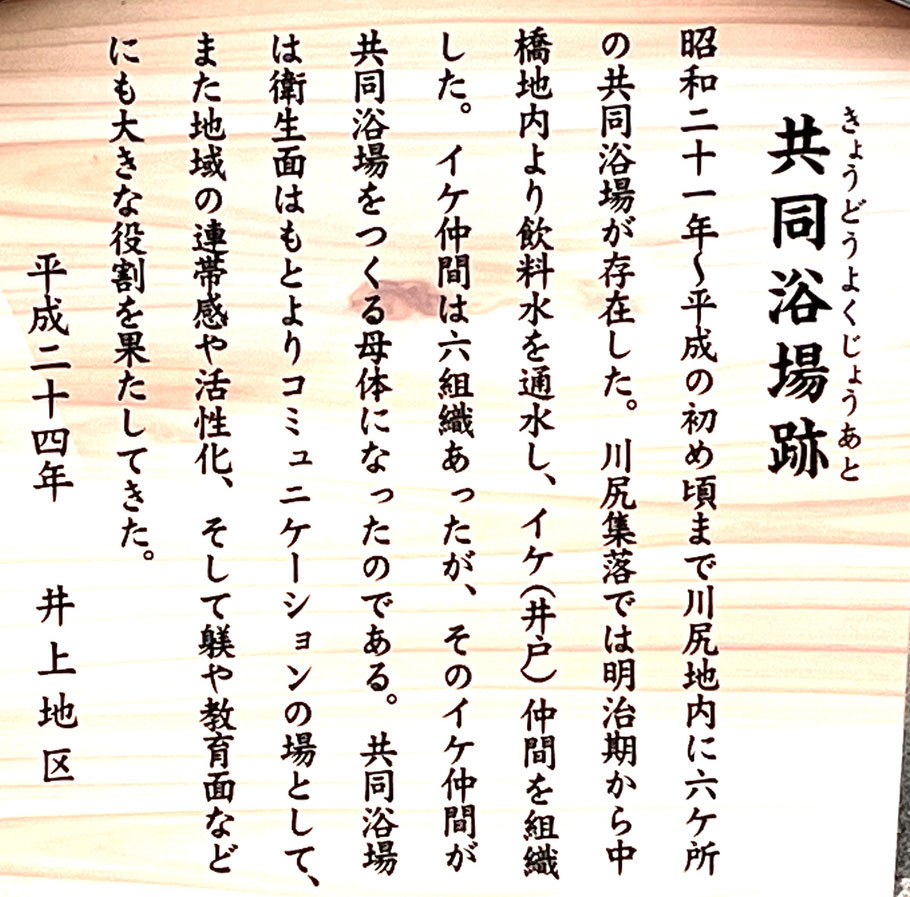 きょうどうよくじょうあと
共同浴場跡
昭和二十一年〜平成の初め頃まで川尻地内に六ケ所
の共同浴場が存在した。川尻集落では明治期から中
橋地内より飲料水を通水し、イケ(井戸)仲間を組織
した。イケ仲間は六組織あったが、そのイケ仲間が
共同浴場をつくる母体になったのである。共同浴場
は衛生面はもとよりコミュニケーションの場として、
また地域の連帯感や活性化、そして躾や教育面など
にも大きな役割を果たしてきた。
平成二十四年 井上地区